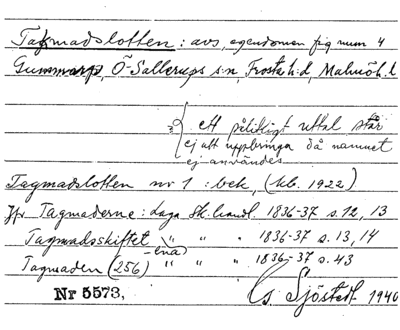 Tagmadslotten: avs, egendomen fig num 4
Gummarp, Ö-Sallerups s:n, Frosta h:d, Malmöh. l
ett pålitligt uttal står
ej att uppbringa då namnet
ej användes
Tagmadslotten nr 1 : bek, (kb. 1922)
Jfr Tagmaderne: Laga Sk. handl. 1836-37 s. 12, 13
Tagmadsskiftet " " " 1836-37 s. 13, 14
Tagmaden (256) -ena) " " " 1836-37 s. 43
Nr 5573, S. Sjöstedt 1940